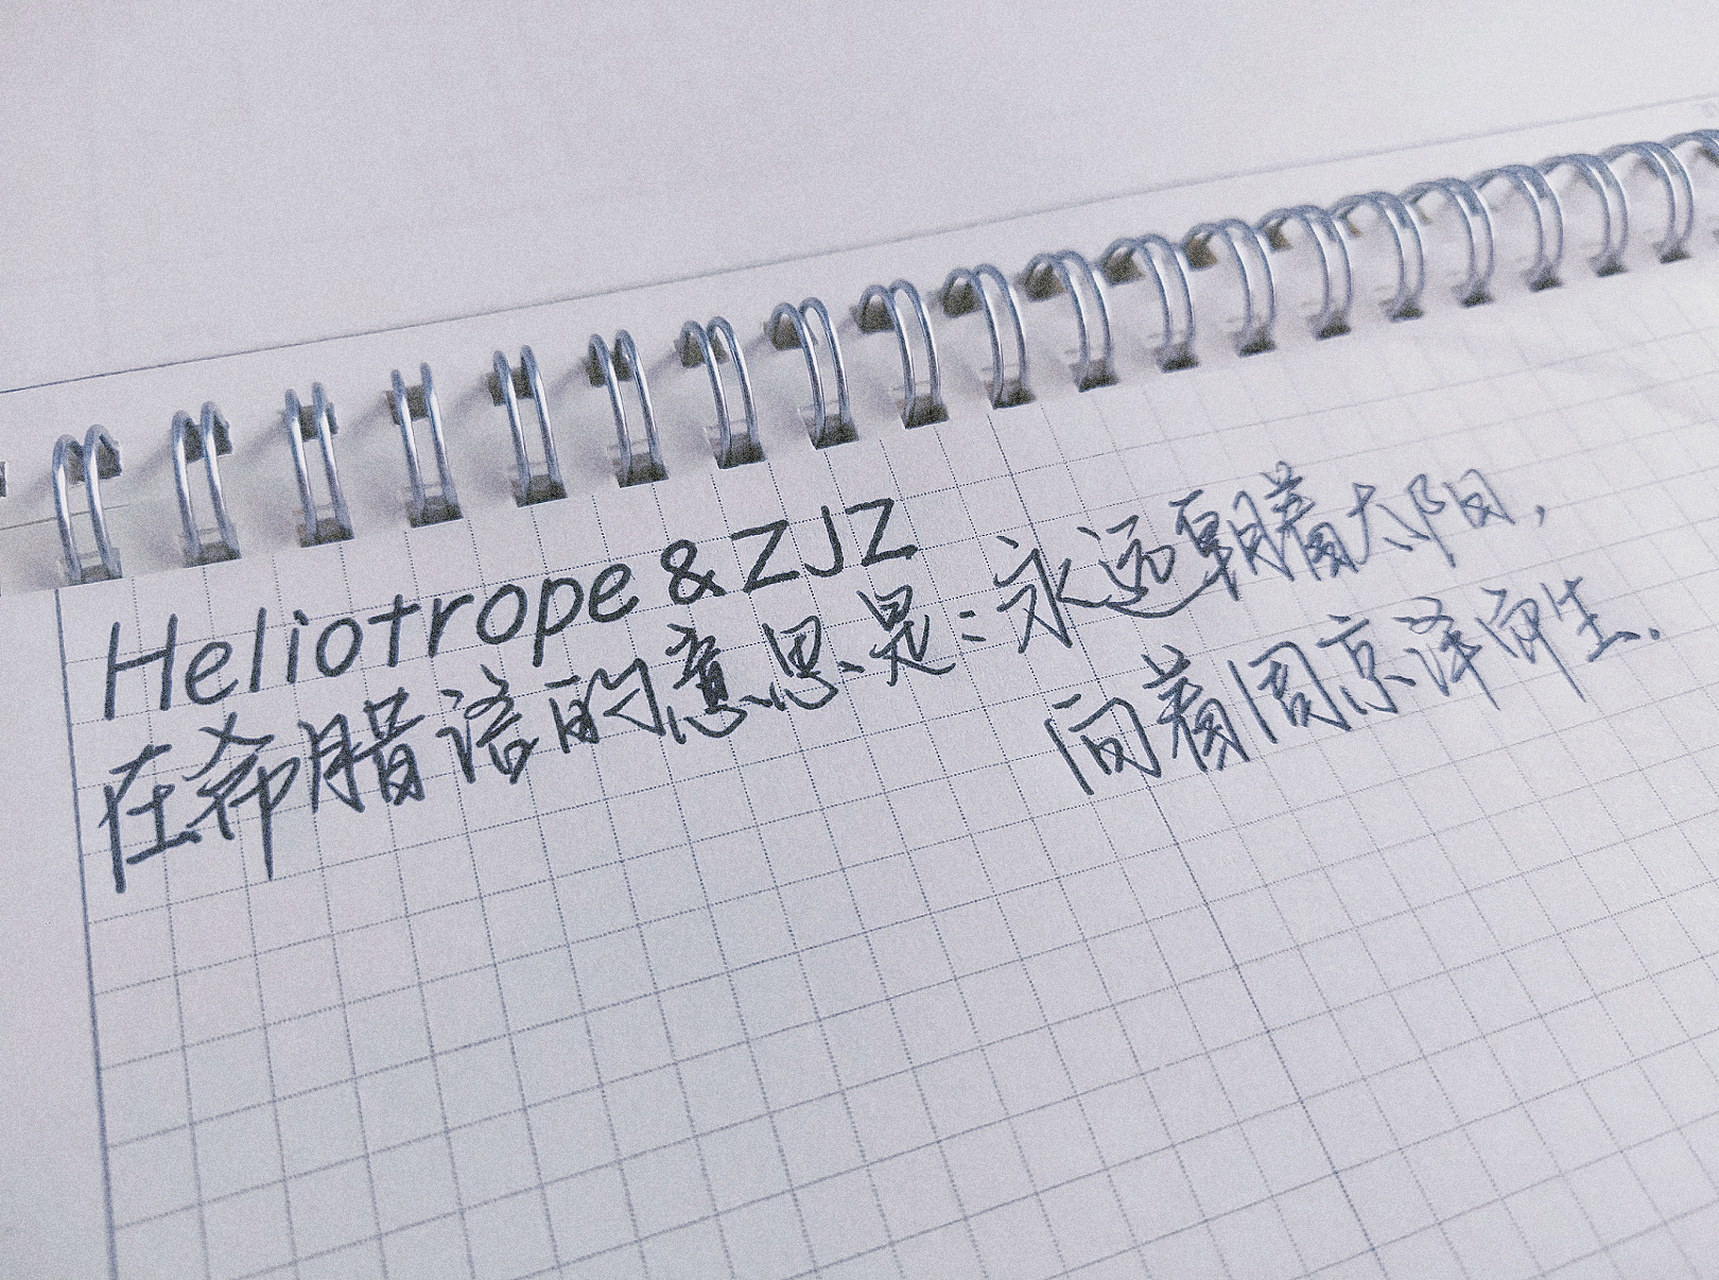 Heliotrope & ZJZ
在希腊语的意思是:永远朝着太阳,
向着周京泽而生.